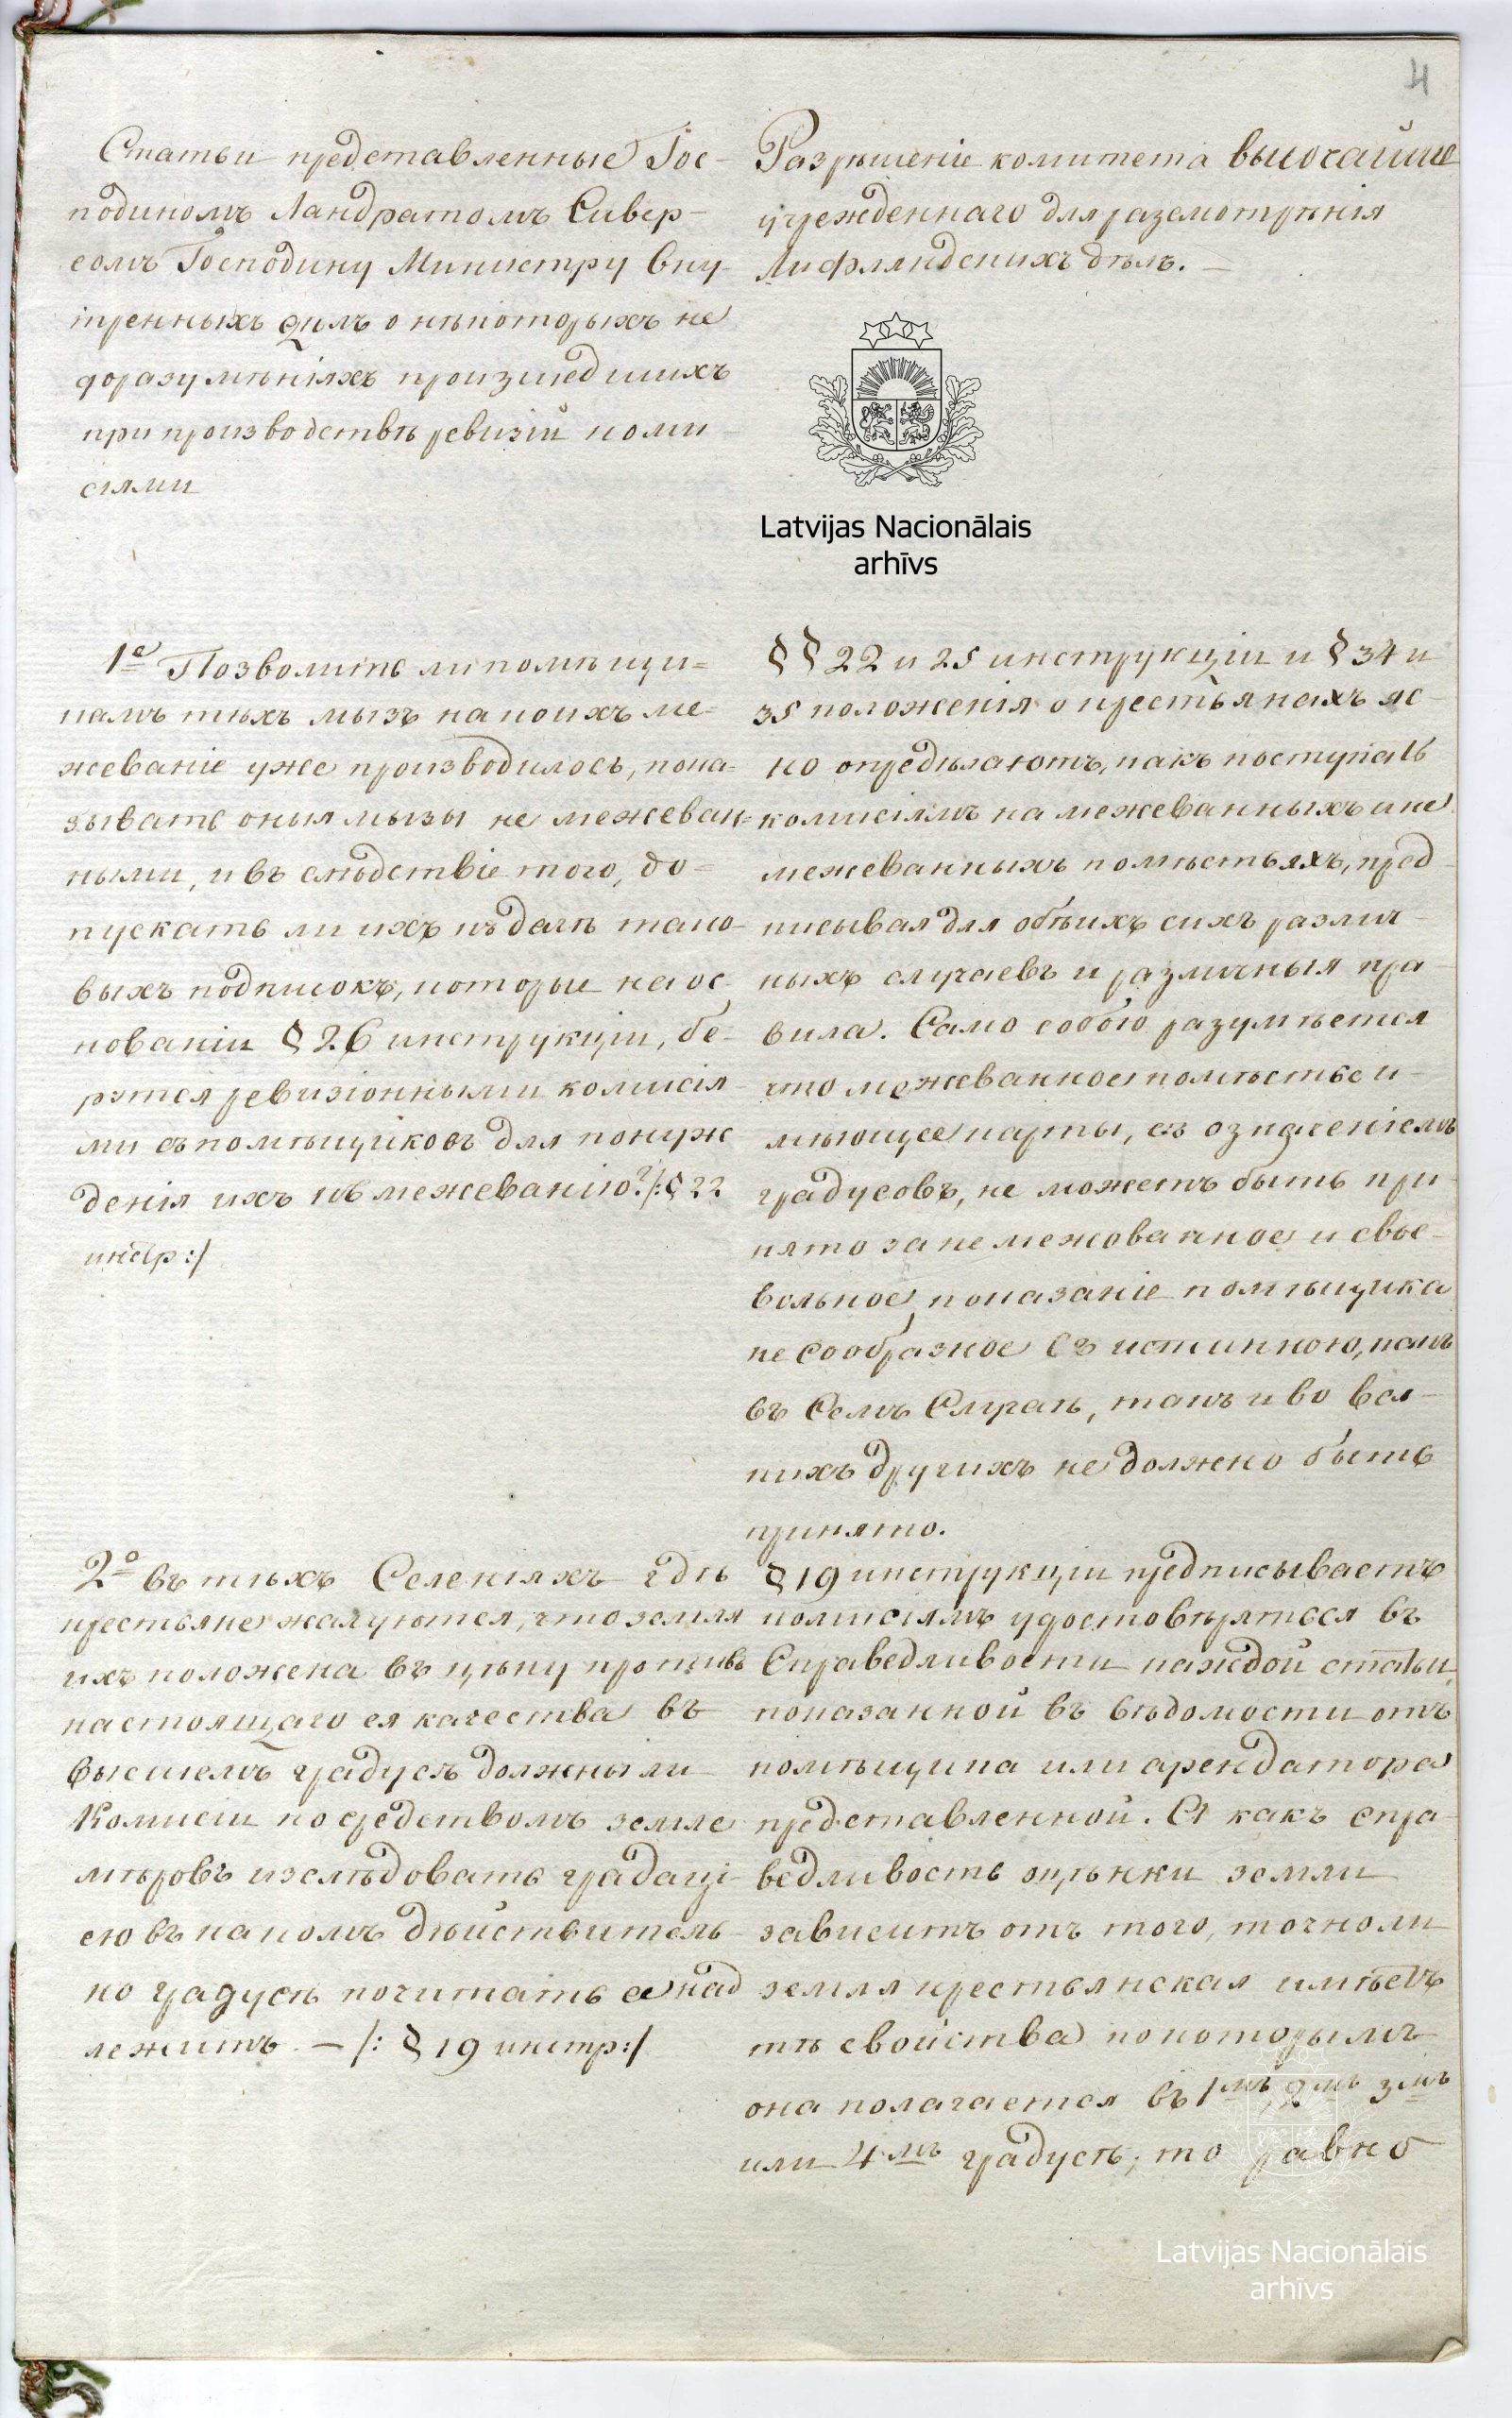 4
Статьи представленные Гос-
подиномъ Ландратомъ Сивер-
сомъ Господину Министру Вну-
тренныхъ дѣлъ о нѣкоторыхъ не
доразумѣніяхъ произшедшихъ
при производствѣ ревизіи коми
сіями
Разрѣшеніе комитета высочайше
учрежденнаго для разсмотрѣнія
Лифляндскихъ дѣлъ. —
Latvijas Nacionālais
arhīvs
1е Позволить ли помѣщи=
камъ тѣхъ мызъ на коихъ ме=
жеваніе уже производилось, пока=
зывать оныя мызы не межеван=
ными, и въ слѣдствіе того, до=
пускать ли ихъ къ дачѣ тако-
выхъ подписокъ, которые на ос-
нованіи § 26 инструкціи, бе-
рутся ревизіонными комисія-
ми съ помѣщиковъ для понуж
денія ихъ къ межеванію? /: § 22
инстр :/
§§ 22 и 25 инструкціи и § 34 и
35 положенія о крестьянахъ яс-
но опредѣляютъ, какъ поступать
комисіямъ на межеванныхъ и не
межеванныхъ помѣстьяхъ, пред-
писывая для обѣихъ сихъ различ-
ныхъ случаевъ и различныя пра-
вила. Само собою разумѣется
что межеванное помѣстье и-
мѣющее карты, съ означеніемъ
градусовъ, не можетъ быть при-
нято за не межованное и свое-
вольное показаніе помѣщика
не сообразное съ истинною, какъ
въ семъ случаѣ, такъ и во вся-
кихъ другихъ не должно быть
принято.
2о въ тѣхъ Селеніяхъ гдѣ
крестьяне жалуются, что земля
ихъ положена въ цѣну противъ
настоящаго ея качества въ
высшемъ градусѣ должны ли
Комисіи посредствомъ земле
мѣровъ изслѣдовать градаці-
ею въ какомъ дѣйствитель-
но градусѣ почитать ея над
лежитъ. — /: § 19 инстр :/
§ 19 инструкціи предписываетъ
комисіямъ удостовѣряться въ
Справедливости каждой статьи
показанной въ вѣдомости отъ
помѣщика или арендатора
представленной. А какъ спра-
ведливость оцѣнки земли
зависитъ отъ того, точно ли
земля крестьянская имѣетъ
тѣ свойства по которымъ
она полагается въ 1мъ, 2мъ 3мъ
или 4мъ градусѣ; то равно
Latvijas Nacionālais
arhīvs